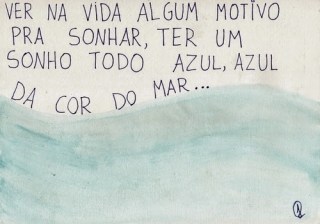 VER NA VIDA ALGUM MOTIVO
PRA SONHAR, TER UM
SONHO TODO AZUL, AZUL
DA COR DO MAR...